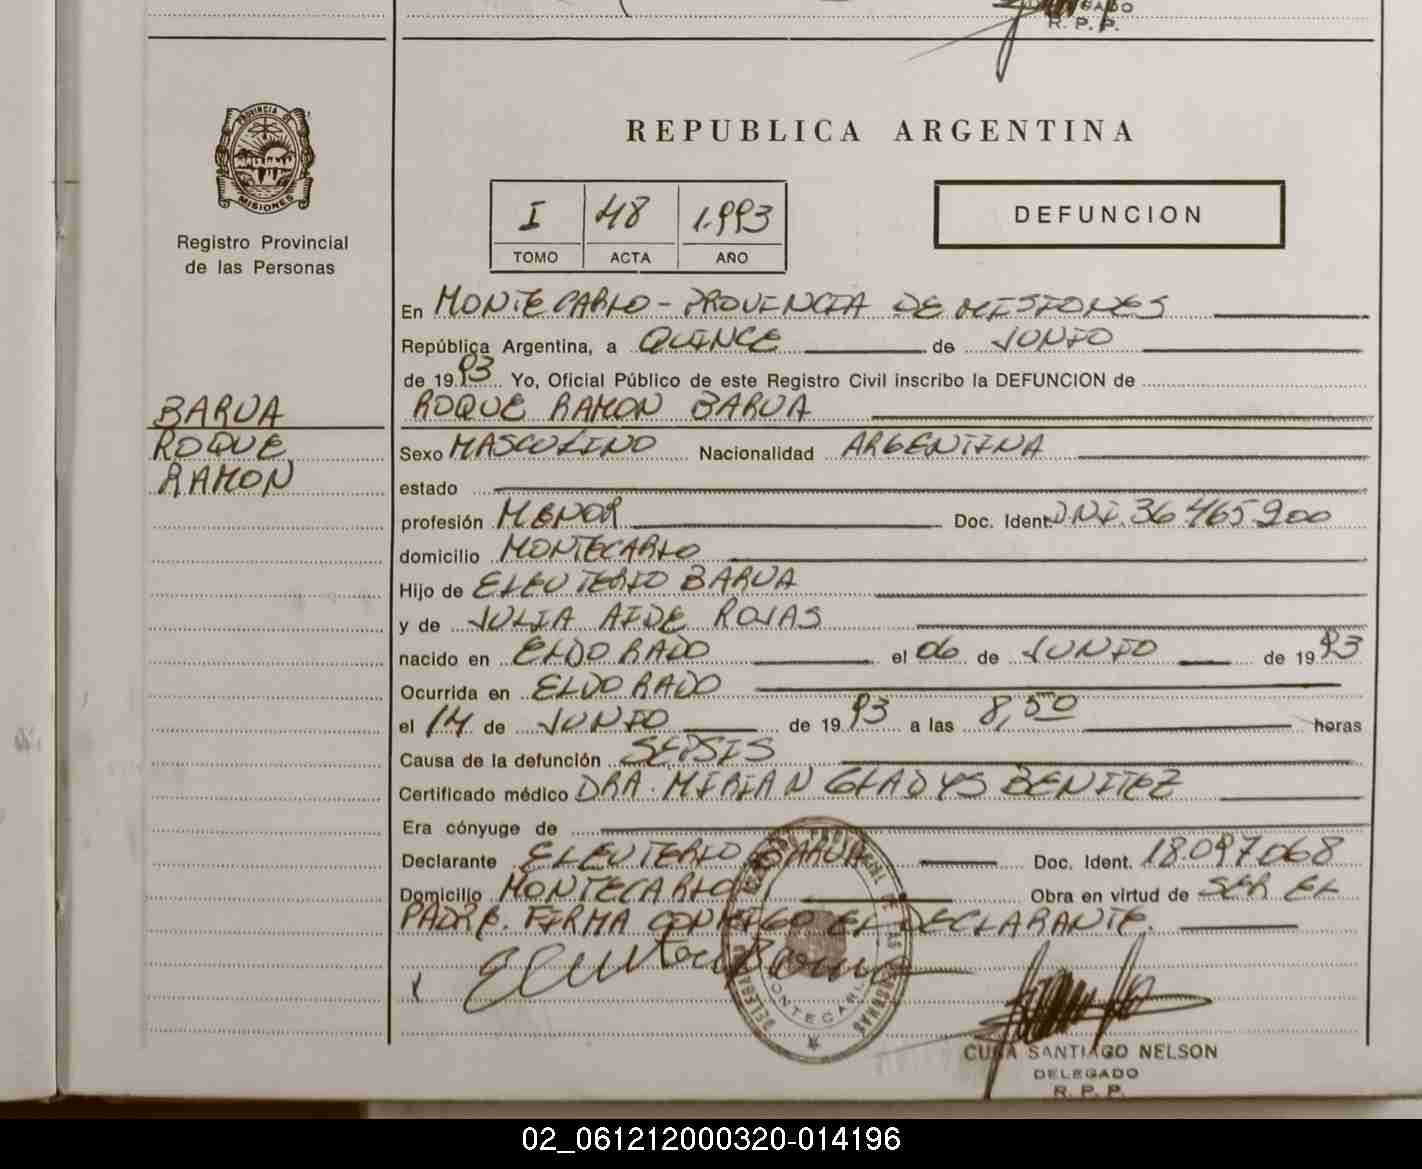 R. P. P.
PROVINCIA DE
MISIONES
Registro Provincial
de las Personas
REPUBLICA ARGENTINA
I 48 1.993
TOMO ACTA AÑO
DEFUNCION
En MONTECARLO - PROVINCIA DE MISIONES
República Argentina, a QUINCE de JUNIO
de 1993 Yo, Oficial Público de este Registro Civil inscribo la DEFUNCION de
BARUA
ROQUE
RAMON
ROQUE RAMON BARUA
Sexo MASCULINO Nacionalidad ARGENTINA
estado
profesión MENOR Doc. Ident. D.N.I. 36.465.200
domicilio MONTECARLO
Hijo de ELEUTERIO BARUA
y de JULIA AIDE ROJAS
nacido en ELDORADO el 06 de JUNIO de 1993
Ocurrida en ELDORADO
el 14 de JUNIO de 1993 a las 8,50 horas
Causa de la defunción SEPSIS
Certificado médico DRA. MIRIAN GLADYS BENITEZ
Era cónyuge de
Declarante ELEUTERIO BARUA Doc. Ident. 18.097.068
Domicilio MONTECARLO Obra en virtud de SER EL
PADRE. FIRMA CONMIGO EL DECLARANTE.
Eleuterio Barua
MONTECARLO
CUBA SANTIAGO NELSON
DELEGADO
R. P. P.
02_061212000320-014196